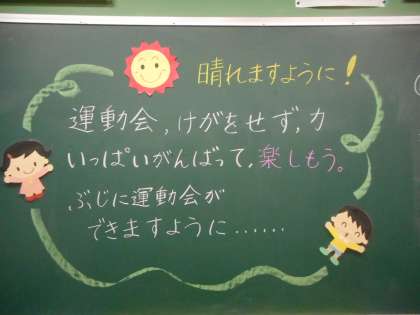 晴れますように!
運動会,けがをせず,力
いっぱいがんばって,楽しもう。
ぶじに運動会が
できますように……